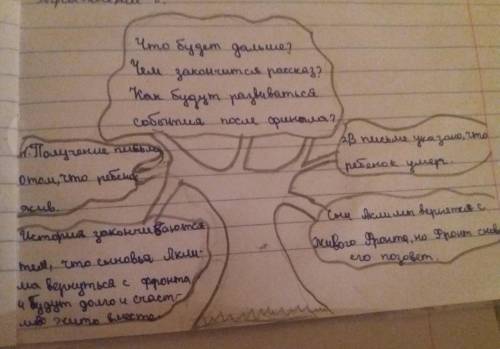 Что будет дальше?
Чем закончится рассказ?
Как будут развиваться
события после финала?
1. Получение письма
о том, что ребено
жив.
2 В письме указано, что
ребенок умер.
История заканчиваются
тем, что сыновья Акли-
ма вернуться с ффронта
и будут долго и счаст-
ливо жить вместе.
Сын Аклимы вернется с
живого Фронта, но Фронт снова
его позовет.